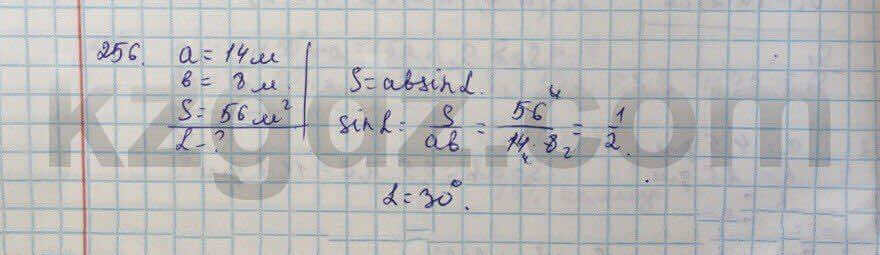 256. a = 14 м
в = 8 м.
S = 56 м²
α - ?
S = ab sin α.
sin α = S/ab = 56/14·8 = 1/2.
α = 30°.
kzgdz.com